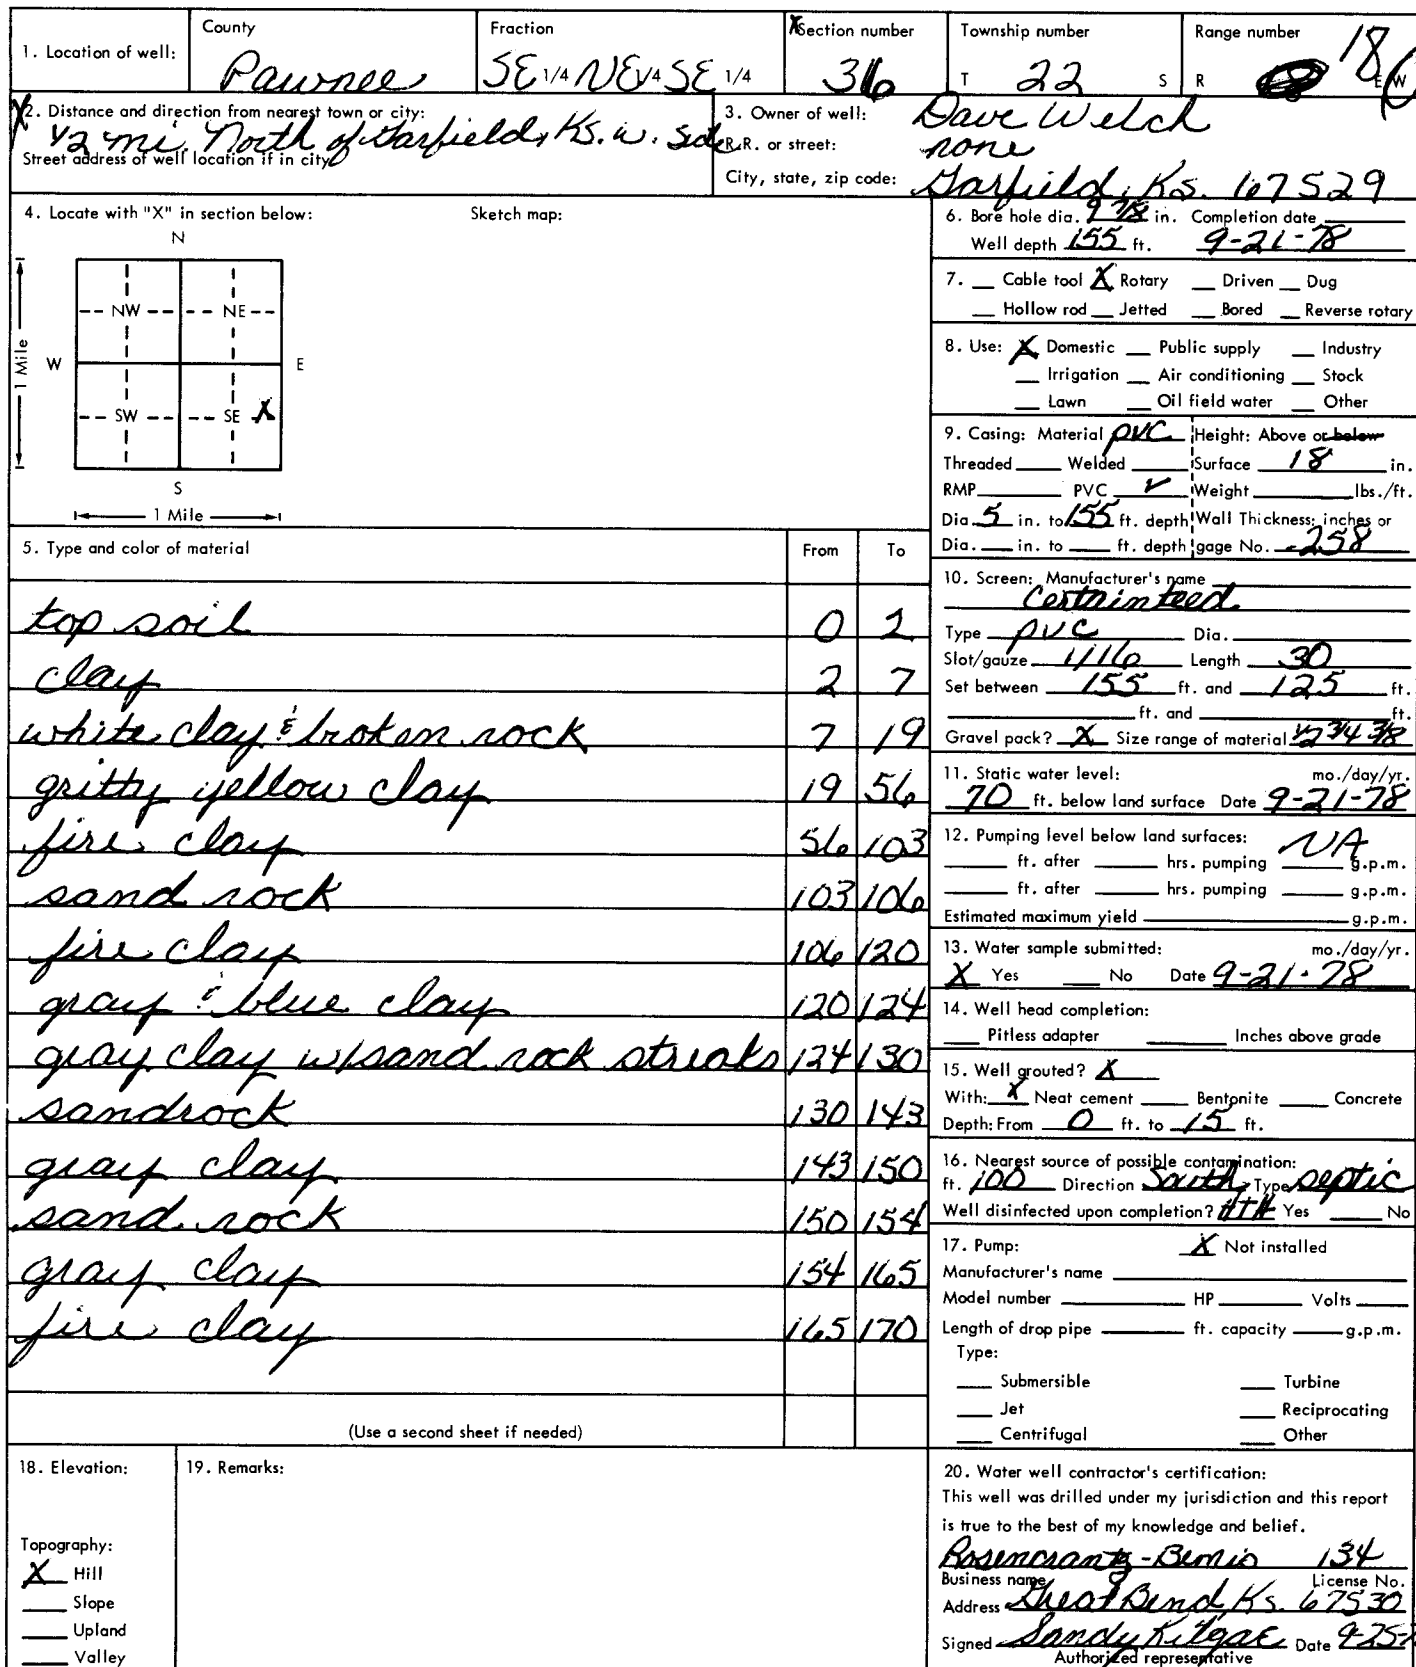 County Fraction Section number Township number Range number
1. Location of well: Pawnee SE 1/4 NE 1/4 SE 1/4 36 T 22 S R 18 E W
2. Distance and direction from nearest town or city:
1/2 mi. North of Garfield, Ks. w. Side
Street address of well location if in city:
3. Owner of well: Dave Welch
R.R. or street: none
City, state, zip code: Garfield, Ks. 67529
4. Locate with "X" in section below: Sketch map:
N
NW NE
W E
1 Mile
SW SE X
S
1 Mile
5. Type and color of material From To
top soil 0 2
clay 2 7
white clay & broken rock 7 19
gritty yellow clay 19 56
fire clay 56 103
sand rock 103 106
fire clay 106 120
gray & blue clay 120 124
gray clay w/sand rock streaks 124 130
sandrock 130 143
gray clay 143 150
sand rock 150 154
gray clay 154 165
fire clay 165 170
(Use a second sheet if needed)
6. Bore hole dia. 9 7/8 in. Completion date
Well depth 155 ft. 9-21-78
7. Cable tool X Rotary Driven Dug
Hollow rod Jetted Bored Reverse rotary
8. Use: X Domestic Public supply Industry
Irrigation Air conditioning Stock
Lawn Oil field water Other
9. Casing: Material PVC Height: Above or below
Threaded Welded Surface 18 in.
RMP PVC ✓ Weight lbs./ft.
Dia. 5 in. to 155 ft. depth Wall Thickness: inches or
Dia. in. to ft. depth gage No. .258
10. Screen: Manufacturer's name
Certainteed
Type PVC Dia.
Slot/gauze 1/16 Length 30
Set between 155 ft. and 125 ft.
ft. and ft.
Gravel pack? X Size range of material 1/2 3/4 3/8
11. Static water level: mo./day/yr.
70 ft. below land surface Date 9-21-78
12. Pumping level below land surfaces: NA
ft. after hrs. pumping g.p.m.
ft. after hrs. pumping g.p.m.
Estimated maximum yield g.p.m.
13. Water sample submitted: mo./day/yr.
X Yes No Date 9-21-78
14. Well head completion:
Pitless adapter Inches above grade
15. Well grouted? X
With: X Neat cement Bentonite Concrete
Depth: From 0 ft. to 15 ft.
16. Nearest source of possible contamination:
ft. 100 Direction South Type septic
Well disinfected upon completion? HTH Yes No
17. Pump: X Not installed
Manufacturer's name
Model number HP Volts
Length of drop pipe ft. capacity g.p.m.
Type:
Submersible Turbine
Jet Reciprocating
Centrifugal Other
18. Elevation: 19. Remarks:
Topography:
X Hill
Slope
Upland
Valley
20. Water well contractor's certification:
This well was drilled under my jurisdiction and this report
is true to the best of my knowledge and belief.
Rosencrantz-Bemis 134
Business name License No.
Address Great Bend, Ks. 67530
Signed Sandy Date 9-25-
Authorized representative